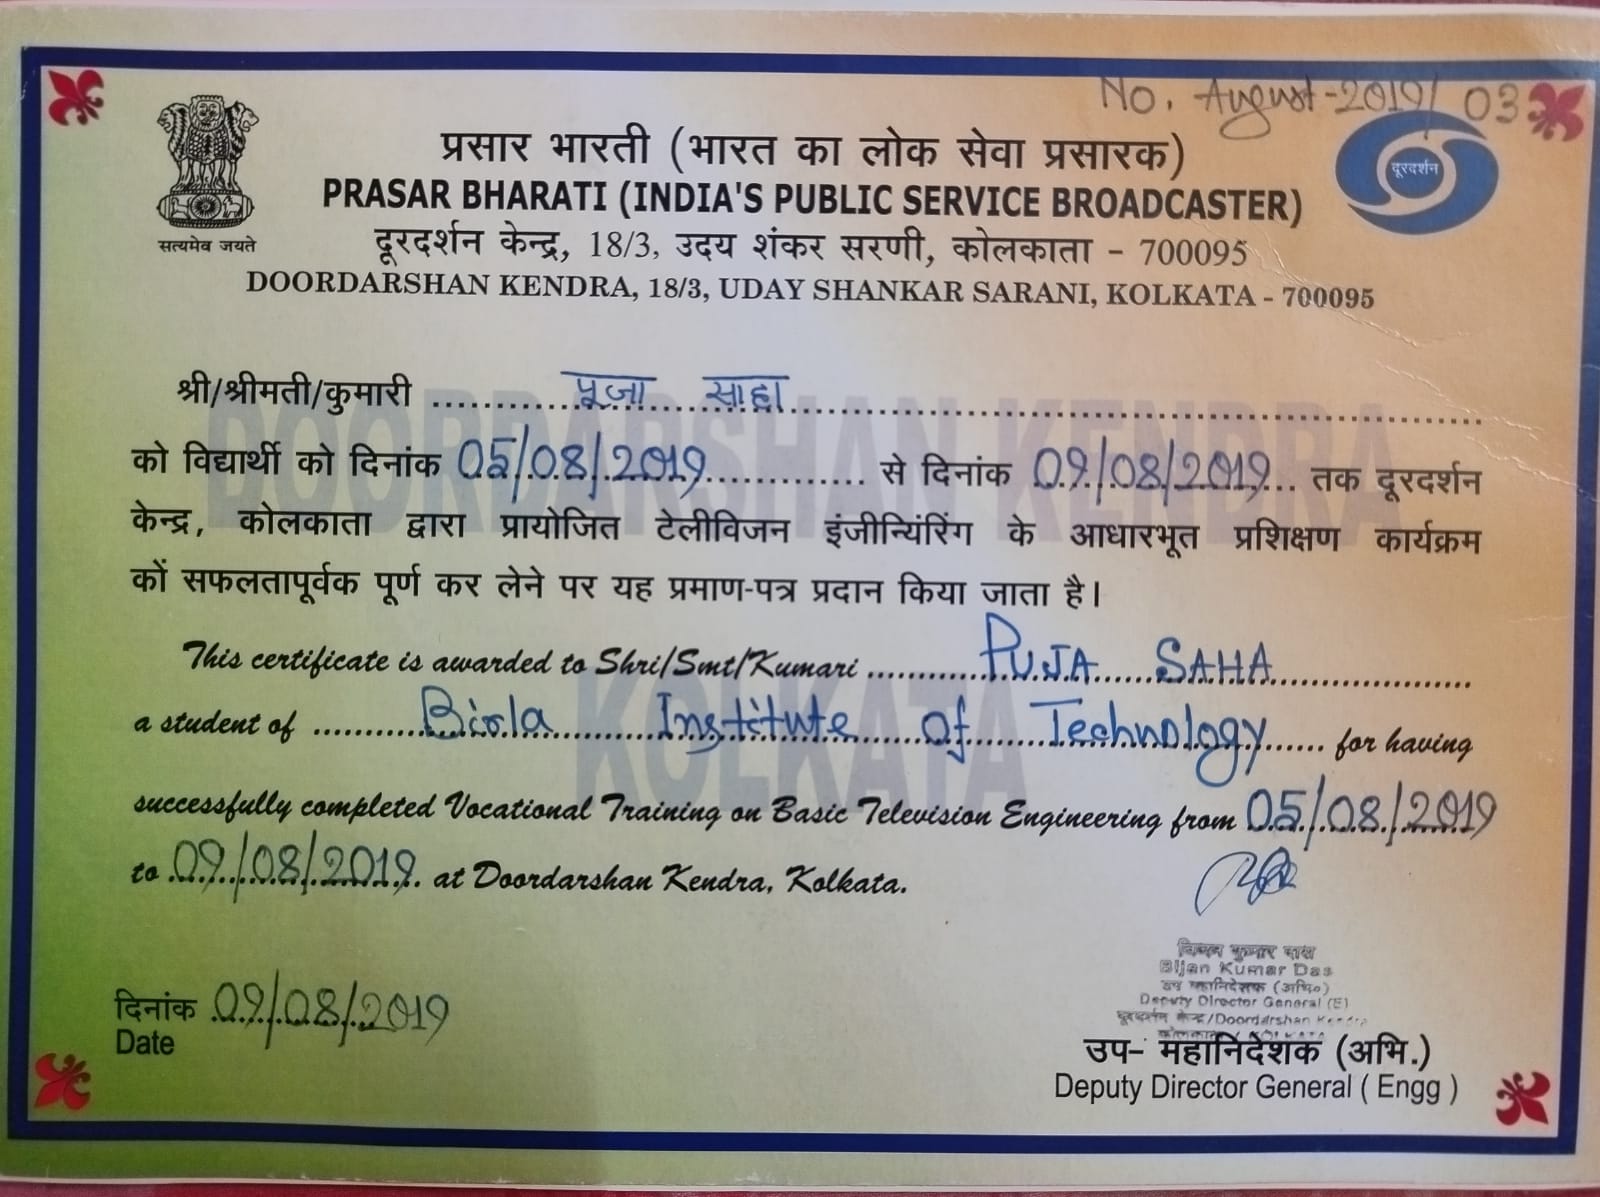 No. August-2019/03
दूरदर्शन
सत्यमेव जयते
प्रसार भारती (भारत का लोक सेवा प्रसारक)
PRASAR BHARATI (INDIA'S PUBLIC SERVICE BROADCASTER)
दूरदर्शन केन्द्र, 18/3, उदय शंकर सरणी, कोलकाता - 700095
DOORDARSHAN KENDRA, 18/3, UDAY SHANKAR SARANI, KOLKATA - 700095
DOORDARSHAN KENDRA
KOLKATA
श्री/श्रीमती/कुमारी ........ पूजा साहा ........
को विद्यार्थी को दिनांक 05/08/2019 ........ से दिनांक 09/08/2019 ... तक दूरदर्शन
केन्द्र, कोलकाता द्वारा प्रायोजित टेलीविजन इंजीन्यिंरिंग के आधारभूत प्रशिक्षण कार्यक्रम
कों सफलतापूर्वक पूर्ण कर लेने पर यह प्रमाण-पत्र प्रदान किया जाता है।
This certificate is awarded to Shri/Smt/Kumari ........ PUJA SAHA ........
a student of ........ Birla Institute of Technology ...... for having
successfully completed Vocational Training on Basic Television Engineering from 05/08/2019
to 09/08/2019. at Doordarshan Kendra, Kolkata.
कुमार दास
Bijan Kumar Das
उप महानिदेशक (अभि०)
Deputy Director General (E)
दूरदर्शन केन्द्र/Doordarshan Kendra
कोलकाता / KOLKATA
दिनांक 09/08/2019
Date
उप- महानिदेशक (अभि.)
Deputy Director General ( Engg )